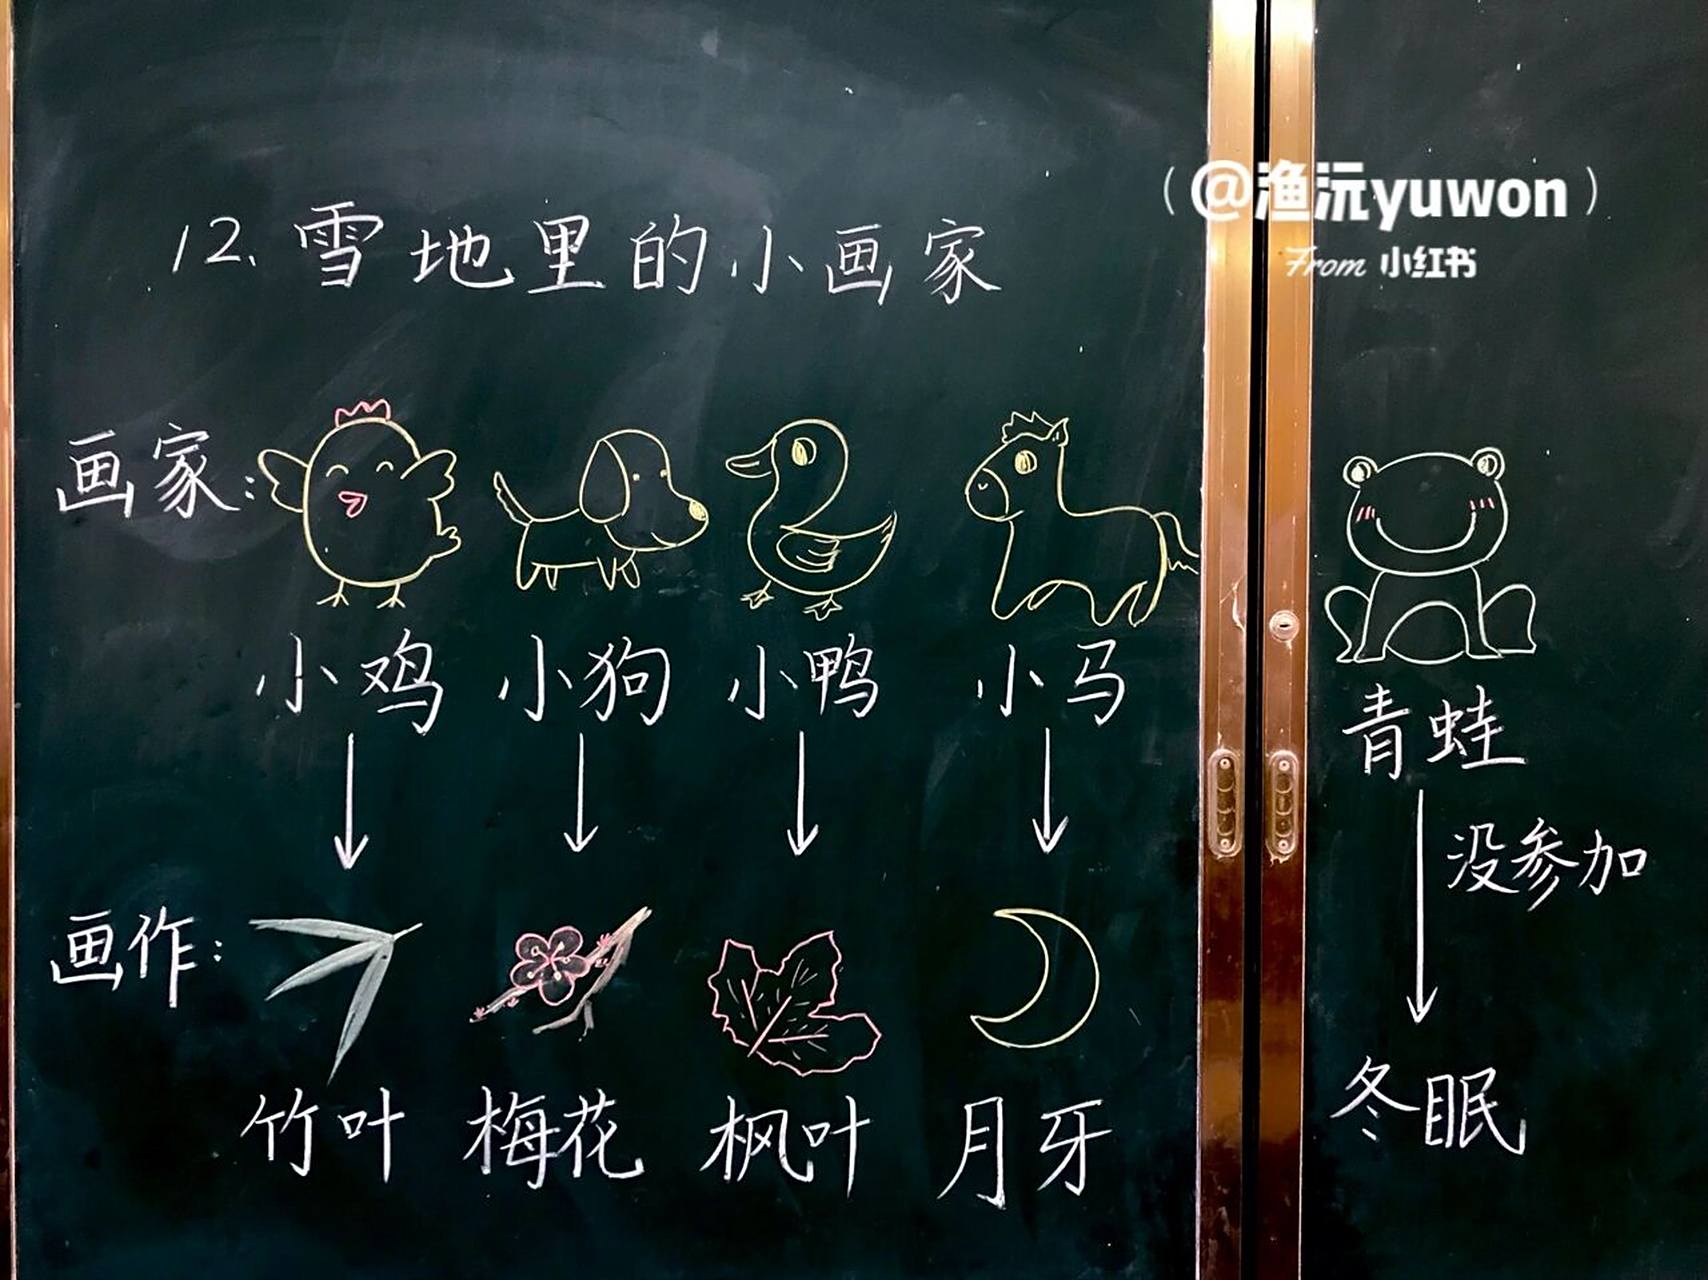 (@渔沅yuwon)
From 小红书
12. 雪地里的小画家
画家:
小鸡 小狗 小鸭 小马 青蛙
没参加
画作:
竹叶 梅花 枫叶 月牙 冬眠